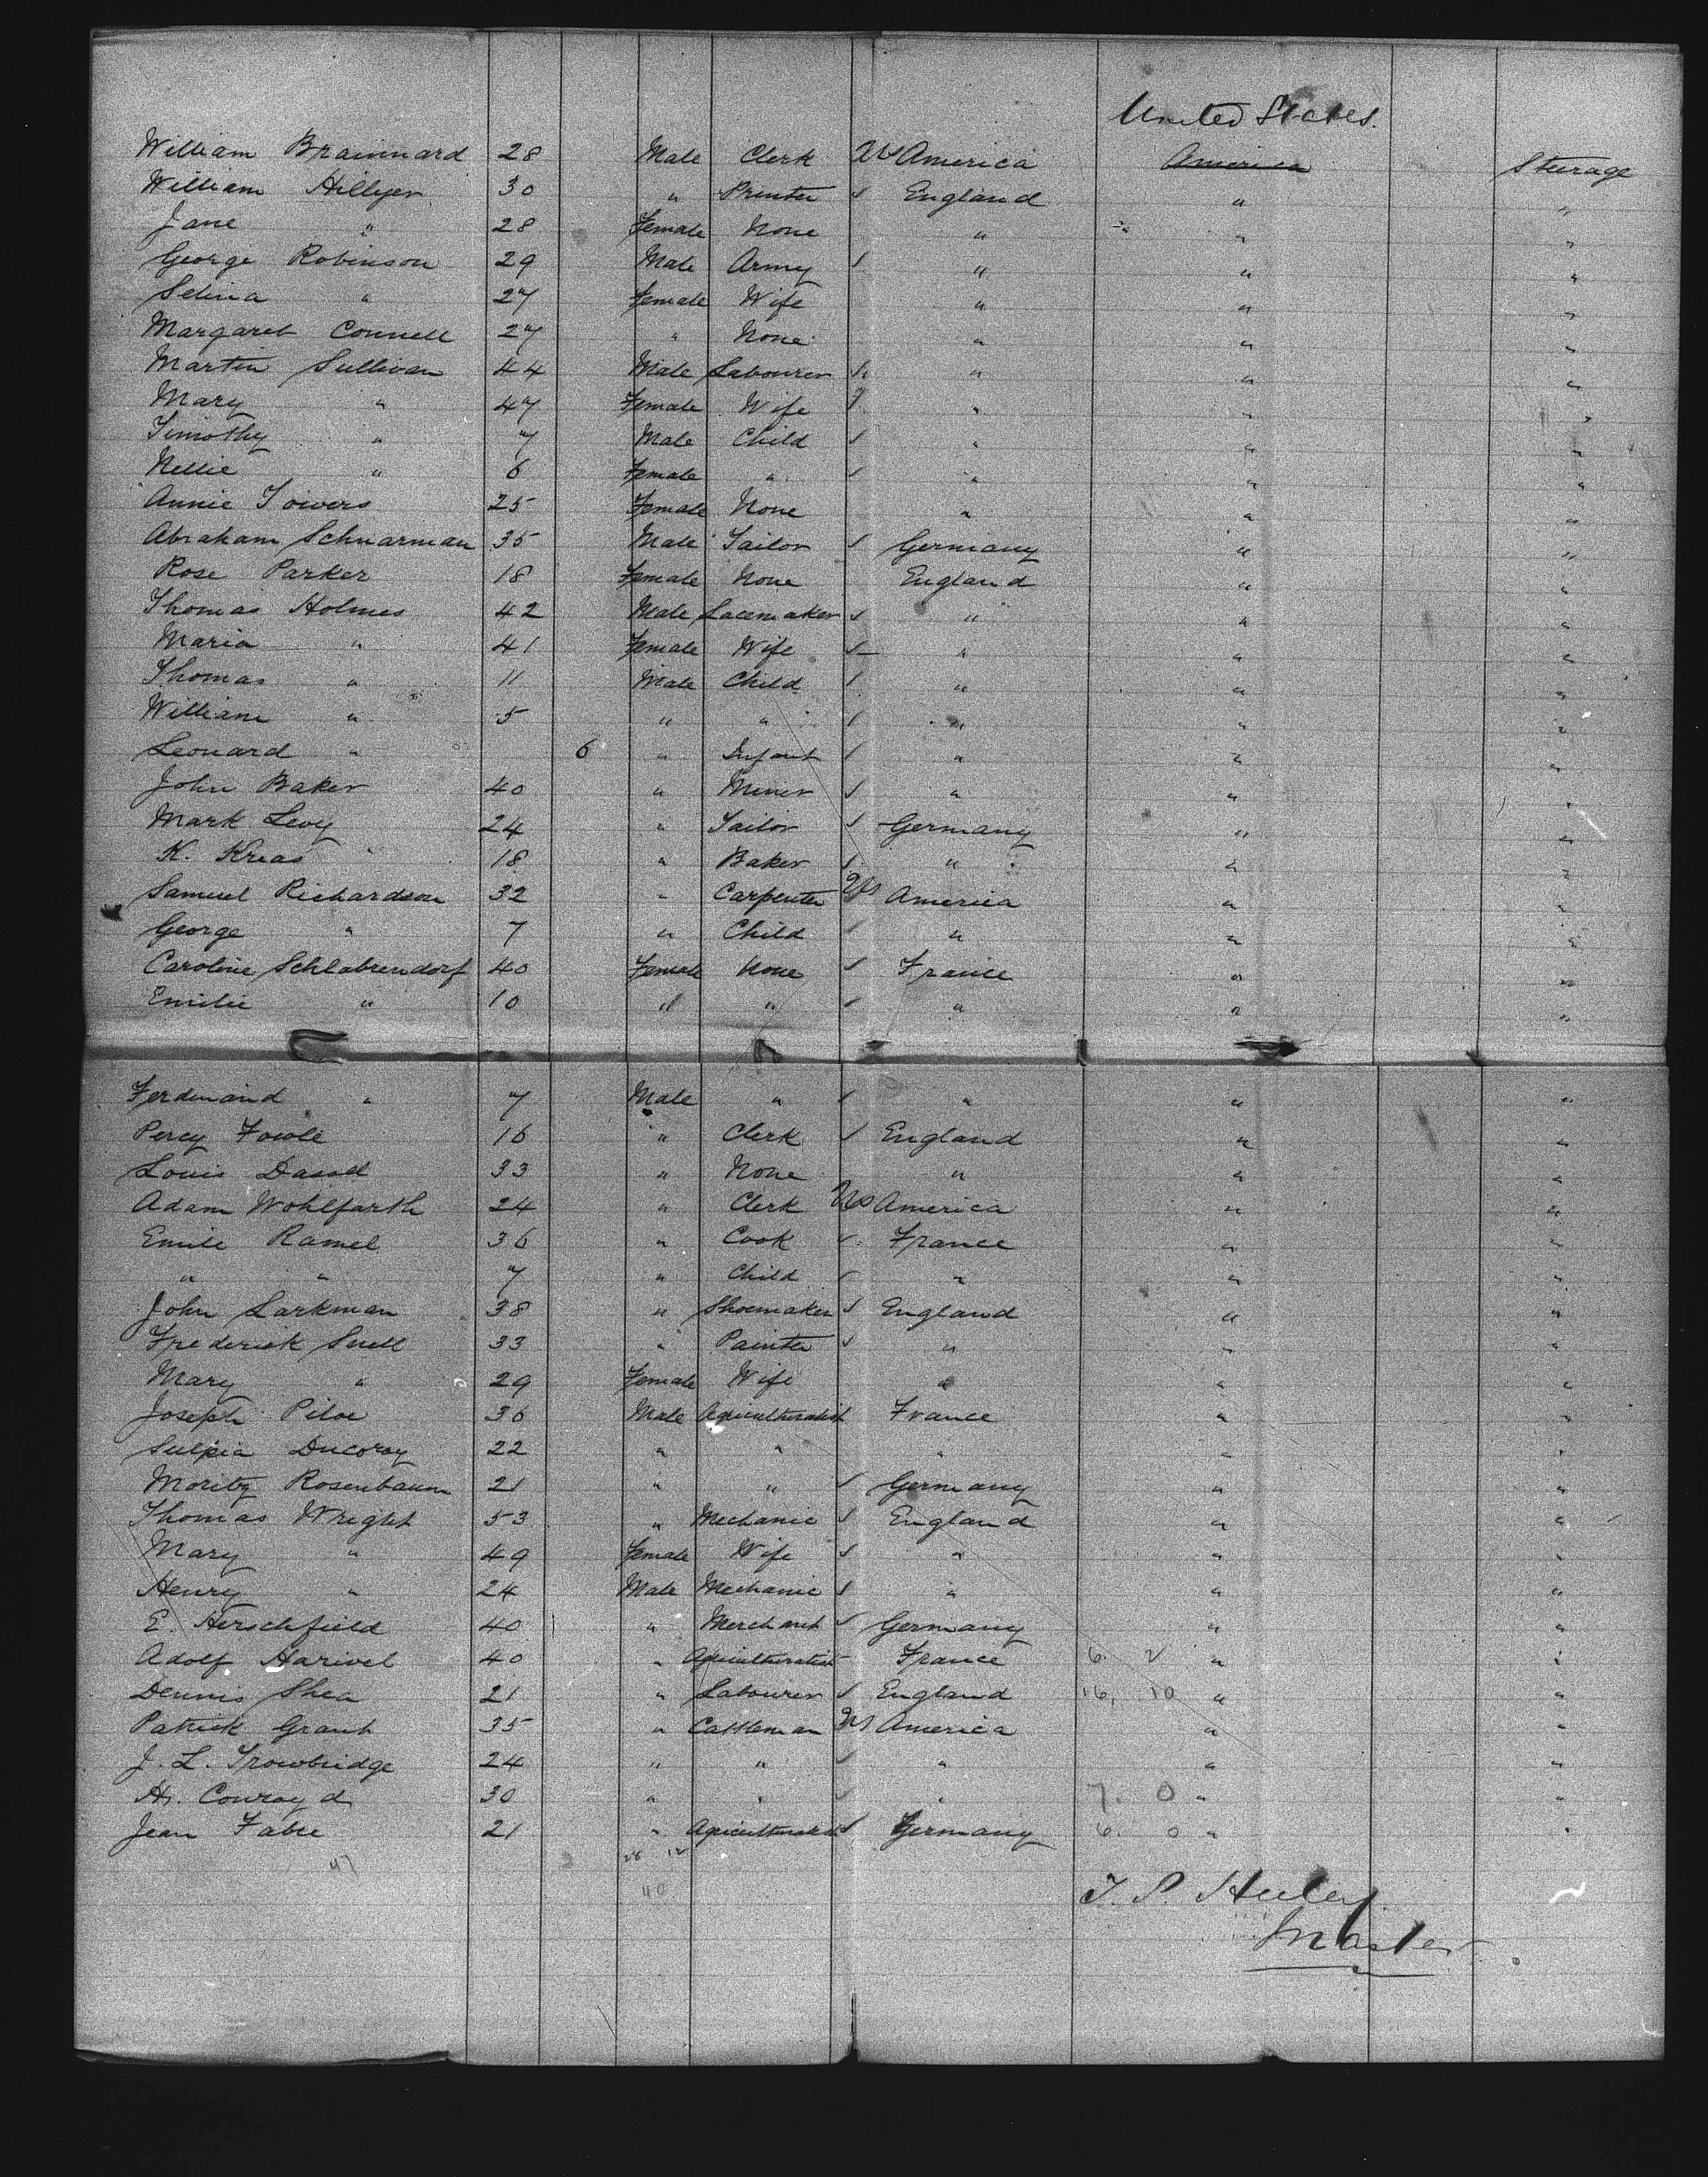 United States.
William Brainnard 28 Male Clerk US America America Steerage
William Hillyer 30 " Printer s England " "
Jane " 28 Female None " " "
George Robinson 29 Male Army s " " "
Selina " 27 Female Wife " " "
Margaret Connell 27 " None " " "
Martin Sullivan 44 Male Labourer s " " "
Mary " 47 Female Wife " " "
Timothy " 7 Male Child s " " "
Nellie " 6 Female " s " " "
Annie Towers 25 Female None " " "
Abraham Schuarman 35 Male Tailor s Germany " "
Rose Parker 18 Female None England " "
Thomas Holmes 42 Male Lacemaker s " " "
Maria " 41 Female Wife s " " "
Thomas " 11 Male Child s " " "
William " 5 " " s " " "
Leonard " 6 " Infant s " " "
John Baker 40 " Miner s " " "
Mark Levy 24 " Tailor s Germany " "
K. Kreas 18 " Baker s " " "
Samuel Richardson 32 " Carpenter US America " "
George " 7 " Child s " " "
Caroline Schlabrendorf 40 Female None s France " "
Emilie " 10 " " s " " "
Ferdinand " 7 Male " s " " "
Percy Fowle 16 " Clerk s England " "
Louis Dassel 33 " None " " "
Adam Wohlfarth 24 " Clerk US America " "
Emile Ramel 36 " Cook s France " "
" " 7 " Child s " " "
John Larkman 38 " Shoemaker s England " "
Frederick Snell 33 " Painter s " " "
Mary " 29 Female Wife " " "
Joseph Piloe 36 Male Agriculturalist France " "
Sulpia Ducoroy 22 " " " " "
Moritz Rosenbaum 21 " " s Germany " "
Thomas Wright 53 " Mechanic s England " "
Mary " 49 Female Wife s " " "
Henry " 24 Male Mechanic s " " "
E. Herschfield 40 " Merchant s Germany " "
Adolf Harivel 40 " Agriculturalist France 6. 2 " "
Dennis Shea 21 " Labourer s England 16, 10 " "
Patrick Grant 35 " Cattleman US America " "
J. L. Trowbridge 24 " " s " " "
H. Conroy d 30 " " s " 7. 0 " "
Jean Fabre 21 " Agriculturalist s Germany 6. 0 " "
47 28 12
40
Master